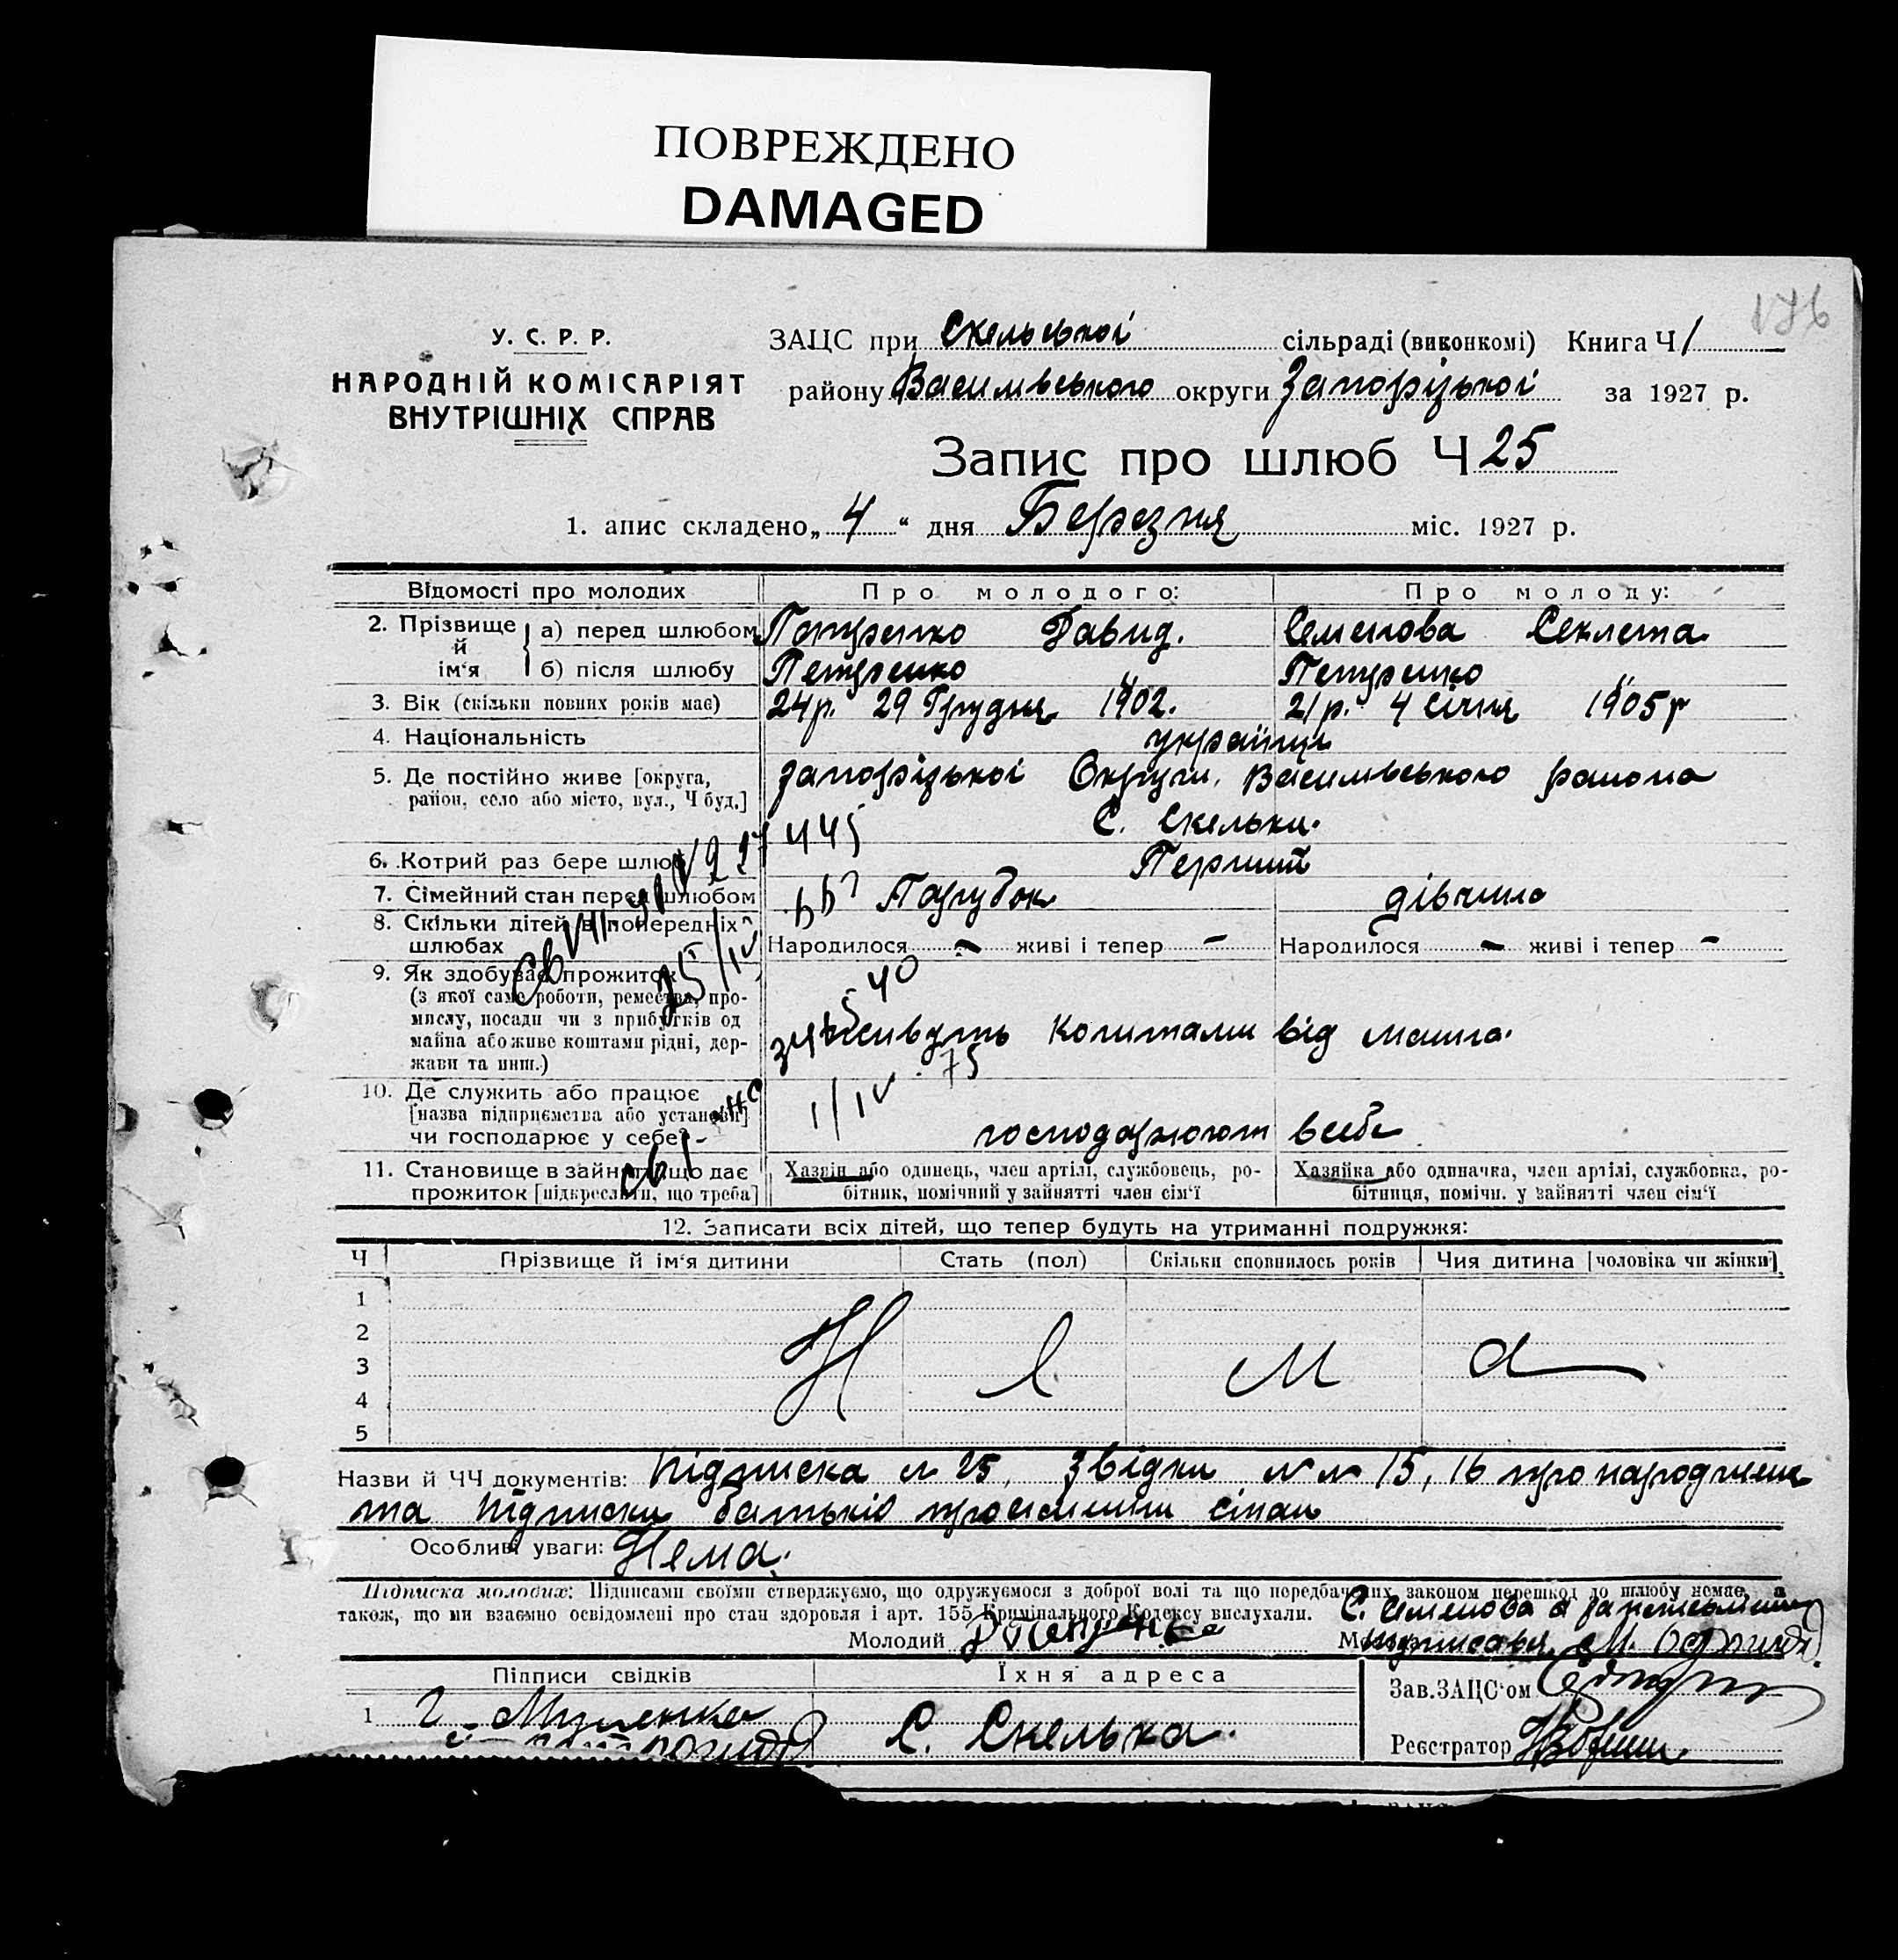 ПОВРЕЖДЕНО
DAMAGED
176
У. С. Р. Р.
НАРОДНІЙ КОМІСАРІЯТ
ВНУТРІШНІХ СПРАВ
ЗАЦС при Скельської сільраді (виконкомі) Книга Ч 1
району Василівського округи Запоріжської за 1927 р.
Запис про шлюб Ч 25
1. апис складено „ 4 “ дня Березня міс. 1927 р.
Відомості про молодих Про молодого: Про молоду:
2. Прізвище й ім‘я а) перед шлюбом Петренко Давид. Семенова Секлета.
б) після шлюбу Петренко Петренко
3. Вік (скільки повних років має) 24 р. 29 Грудня 1902. 21 р. 4 Січня 1905 р
4. Національність українці
5. Де постійно живе [округа, район, село або місто, вул., Ч буд.] Запоріжської Округи, Василівського района
С. Скельки.
445
6. Котрий раз бере шлюб Перший
7. Сімейний стан перед шлюбом Парубок дівчина
8. Скільки дітей в попередніх шлюбах Народилося – живі і тепер – Народилося – живі і тепер –
9. Як здобуває прожиток
(з якої саме роботи, ремества, про-
мислу, посади чи з прибутків од
майна або живе коштами рідні, дер-
жави та инш.)
40
коштами від майна.
1/IV 75
10. Де служить або працює
[назва підприємства або установи]
чи господарює у себе? господарюют в себе
11. Становище в занятті що дає
прожиток [підкреслити, що треба]
Хазяїн або одинець, член артілі, службовець, ро-
бітник, помічний у зайнятті член сім‘ї
Хазяйка або одиначка, член артілі, службовка, ро-
бітниця, помічн. у зайнятті член сім‘ї
12. Записати всіх дітей, що тепер будуть на утриманні подружжя:
Ч Прізвище й ім‘я дитини Стать (пол) Скільки сповнилось років Чия дитина [чоловіка чи жінки]
1
2
3 Н е м а
4
5
Назви й ЧЧ документів: Підписка № 25, Звідки №№ 15, 16 про народження
та підписки батьків про стан
Особливі уваги: Нема.
Підписка молодих: Підписами своїми стверджуємо, що одружуємося з доброї волі та що передбачених законом перешкод до шлюбу немає, а
також, що ми взаємно освідомлені про стан здоровля і арт. 155 Кримінального Кодексу вислухали. С. Семенова а
Молодий Д Петренко
Підписи свідків Їхня адреса Зав. ЗАЦС‘ом
1 С. Скелька. Реєстратор